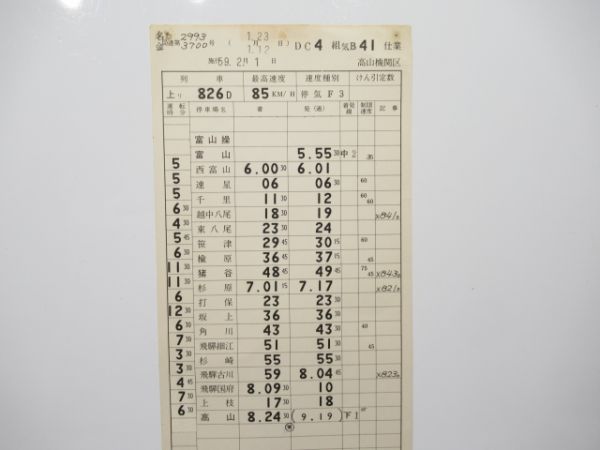 名達第2993号 1.23
金運達第3700号 (1月12日) DC4組気B41仕業
施行59.2月1日 高山機関区
列車 最高速度 速度種別 けん引定数
上り 826D 85KM/H 停気F3
運転時分 停車場名 着 発(通) 着発線 制限速度 記事
富山操
富山 5.55 30 中2 35
5 西富山 6.00 30 6.01
5 速星 06 06 30 60
5 千里 11 30 12 60 60
6 30 越中八尾 18 30 19 ×841D
4 30 東八尾 23 30 24
5 45 笹津 29 45 30 15 60
6 30 楡原 36 45 37 15 45
11 30 猪谷 48 45 49 45 75 45 ×843D
11 30 杉原 7.01 15 7.17 ×821D
6 打保 23 23 30
12 30 坂上 36 36 30
6 30 角川 43 43 30 40
7 30 飛騨細江 51 51 30 45
3 30 杉崎 55 55 30
3 30 飛騨古川 59 8.04 45 ×823D
4 45 飛騨国府 8.09 30 10
7 30 上枝 17 30 18
6 30 高山 8.24 30 (9.19) 下1